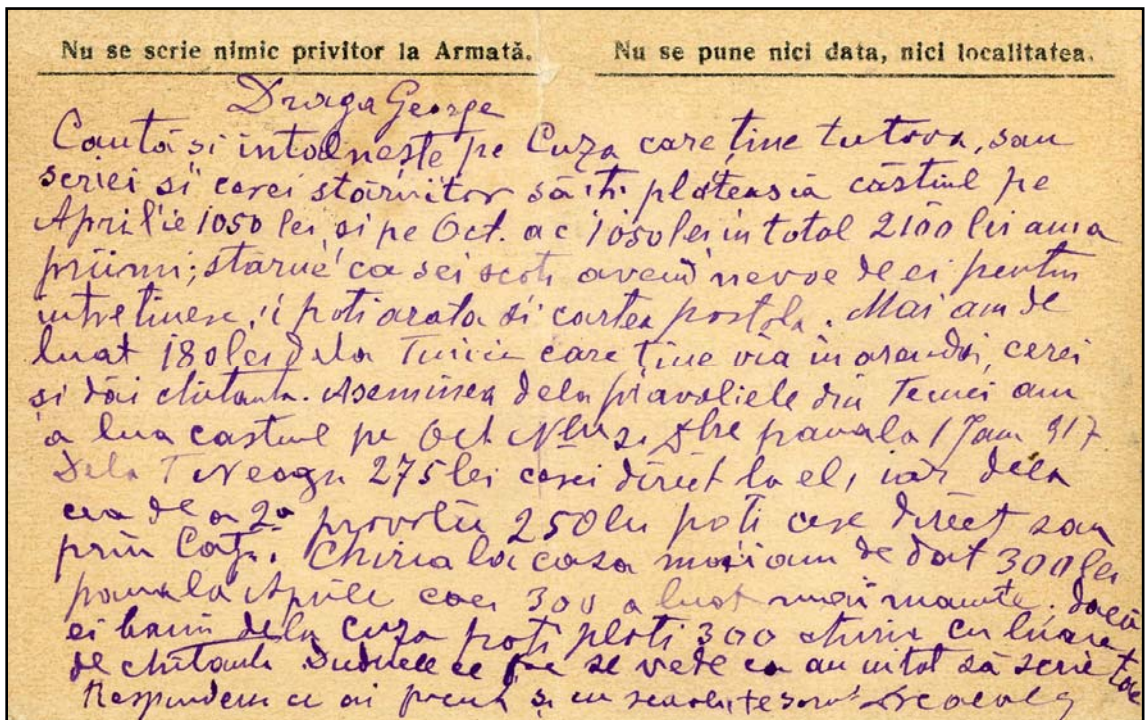 Nu se scrie nimic privitor la Armată. Nu se pune nici data, nici localitatea.
Draga George
Cautá si intalneste pe Cuza care ține tutova, sau
scriei si cerei stăruitor să iti plăteasia câstiul pe
Aprilie 1050 lei, si pe Oct. ac 1050 lei in total 2100 lei am a
priimi; starue ca sei scoti avend nevoe de ei pentru
intretinere, ii poti arata si cartea postala. Mai am de
luat 180 lei dela care ține via in arenda, cerei
și dăi chitanta. Aseminea dela pravaliele din Tecuci am
a lua castiul pe Oct Nbre si Xbre pana la 1 Jan 917
Dela T Neagu 275 lei cerei direct la el, iar dela
cea de a 2a provolie 250 lei poti cere direct sau
prin Chiria la casa mai am de dat 300 lei
pana la Aprile caci 300 a luat mai nainte. Dacă
ei banii dela Cuza poți plati 300 chirie cu luare
de chitanta se vede ca au uitat să scrie
Respundem ce ai facut si cu